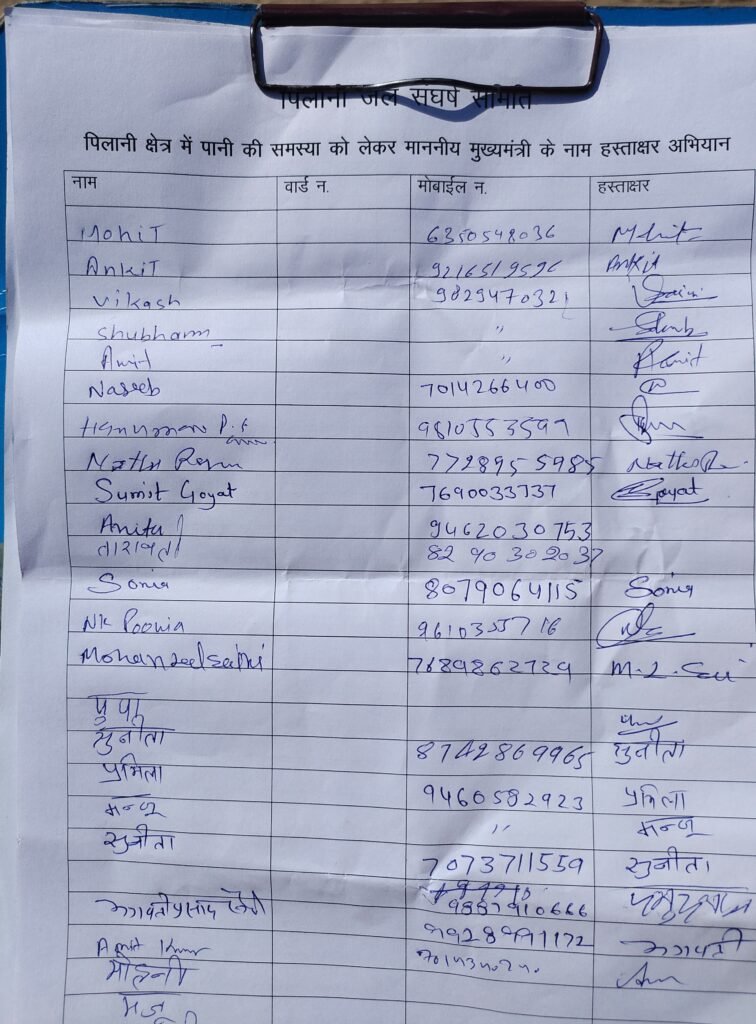 पिलानी जल संघर्ष समिति
पिलानी क्षेत्र में पानी की समस्या को लेकर माननीय मुख्यमंत्री के नाम हस्ताक्षर अभियान
नाम वार्ड न. मोबाईल न. हस्ताक्षर
Mohit 6350548036 Mohit
Ankit 9216519596 Ankit
Vikash 9829470321 Saini
Shubham "
Amit " Amit
Naseeb 7014266400
Hanuman 9810553599
Nathu Ram 7728955985 Nathu Ra
Sumit Goyat 7690033737 Goyat
Anita 9462030753
तारावती 8290302037
Sonia 8079064115 Sonia
NK Poonia 9610355716
Mohanlal Saini 7689862729 M.L. Sai
सुनीता 8742869965 सुनीता
प्रमिला 9460582923 प्रमिला
मन्जू " मन्जू
सुनीता 7073711559 सुनीता
9887910666
भगवती प्रसाद 9928991172 भगवती
Amit Kumar
मोहनी
मंजू